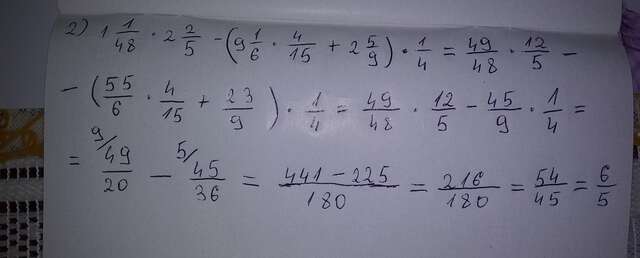 2) 1 1/48 · 2 2/5 - (9 1/6 · 4/15 + 2 5/9) · 1/4 = 49/48 · 12/5 -
- (55/6 · 4/15 + 23/9) · 1/4 = 49/48 · 12/5 - 45/9 · 1/4 =
= 9/ 49/20 - 5/ 45/36 = 441-225/180 = 216/180 = 54/45 = 6/5